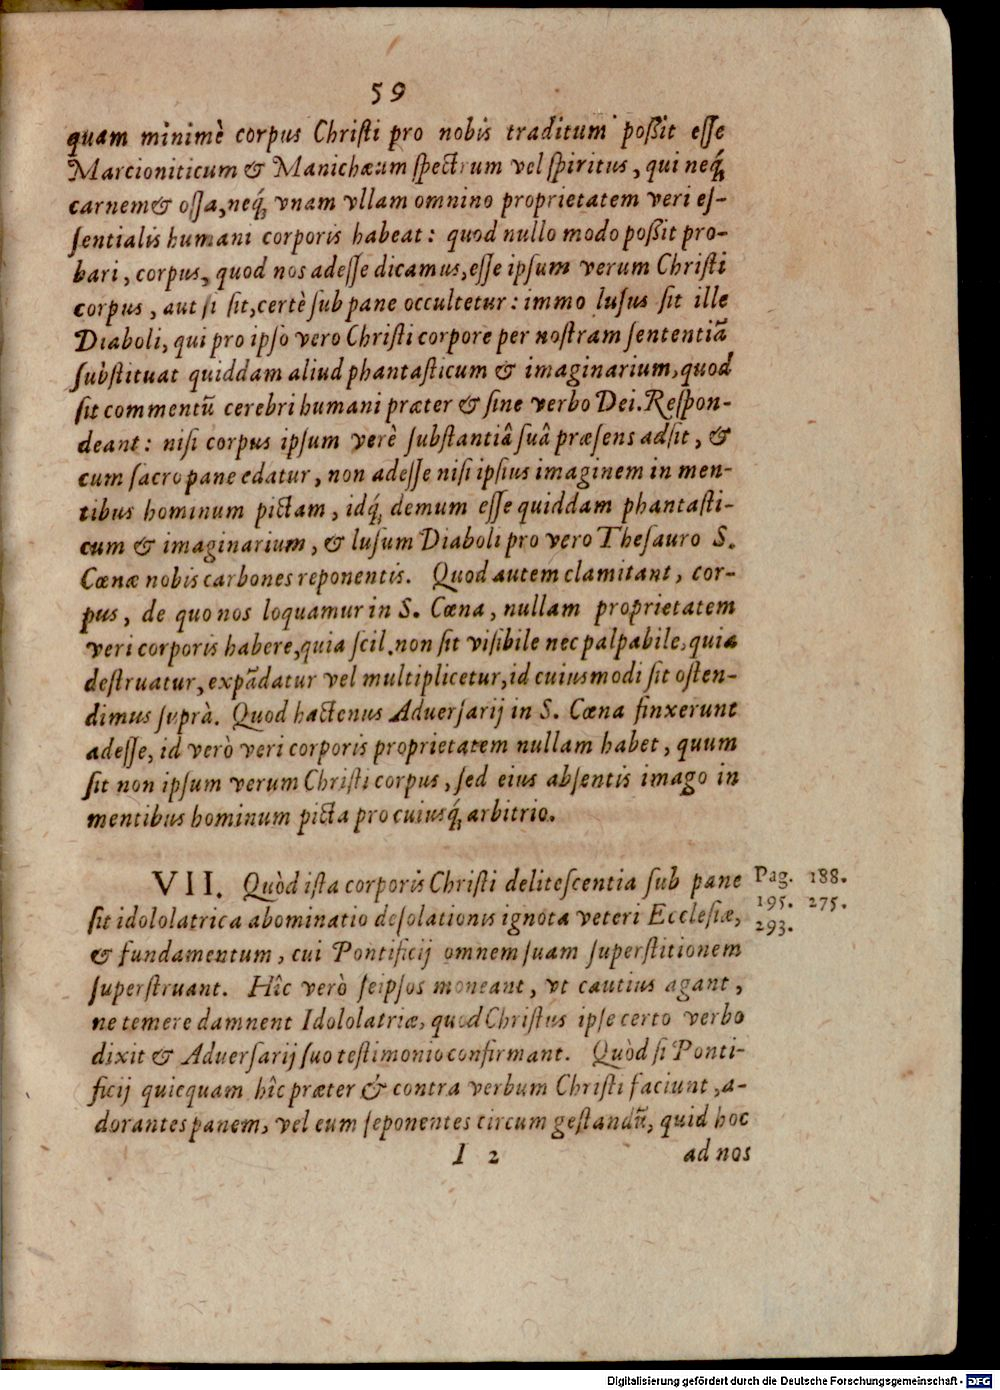 59
quam minimè corpus Christi pro nobis traditum possit esse
Marcioniticum & Manichæum spectrum vel spiritus, qui neq́;
carnem & ossa, neq́; vnam vllam omnino proprietatem veri es-
sentialis humani corporis habeat: quod nullo modo possit pro-
bari, corpus, quod nos adesse dicamus, esse ipsum verum Christi
corpus, aut si sit, certè sub pane occultetur: immo lusus sit ille
Diaboli, qui pro ipso vero Christi corpore per nostram sententiã
substituat quiddam aliud phantasticum & imaginarium, quod
sit commentũ cerebri humani præter & sine verbo Dei. Respon-
deant: nisi corpus ipsum verè substantiâ suâ præsens adsit, &
cum sacro pane edatur, non adesse nisi ipsius imaginem in men-
tibus hominum pictam, idq́; demum esse quiddam phantasti-
cum & imaginarium, & lusum Diaboli pro vero Thesauro S.
Cœnæ nobis carbones reponentis. Quod autem clamitant, cor-
pus, de quo nos loquamur in S. Cœna, nullam proprietatem
veri corporis habere, quia scil. non sit visibile nec palpabile, quia
destruatur, expãdatur vel multiplicetur, id cuiusmodi sit osten-
dimus suprà. Quod hactenus Aduersarij in S. Cœna finxerunt
adesse, id verò veri corporis proprietatem nullam habet, quum
sit non ipsum verum Christi corpus, sed eius absentis imago in
mentibus hominum picta pro cuiusq́; arbitrio.
VII. Quòd ista corporis Christi delitescentia sub pane
Pag. 188.
195. 275.
293.
sit idololatrica abominatio desolationis ignota veteri Ecclesiæ,
& fundamentum, cui Pontificij omnem suam superstitionem
superstruant. Hîc verò seipsos moneant, vt cautius agant,
ne temere damnent Idololatriæ, quod Christus ipse certo verbo
dixit & Aduersarij suo testimonio confirmant. Quòd si Ponti-
ficij quicquam hîc præter & contra verbum Christi faciunt, a-
dorantes panem, vel eum seponentes circum gestandũ, quid hoc
I 2
ad nos
Digitalisierung gefördert durch die Deutsche Forschungsgemeinschaft - DFG